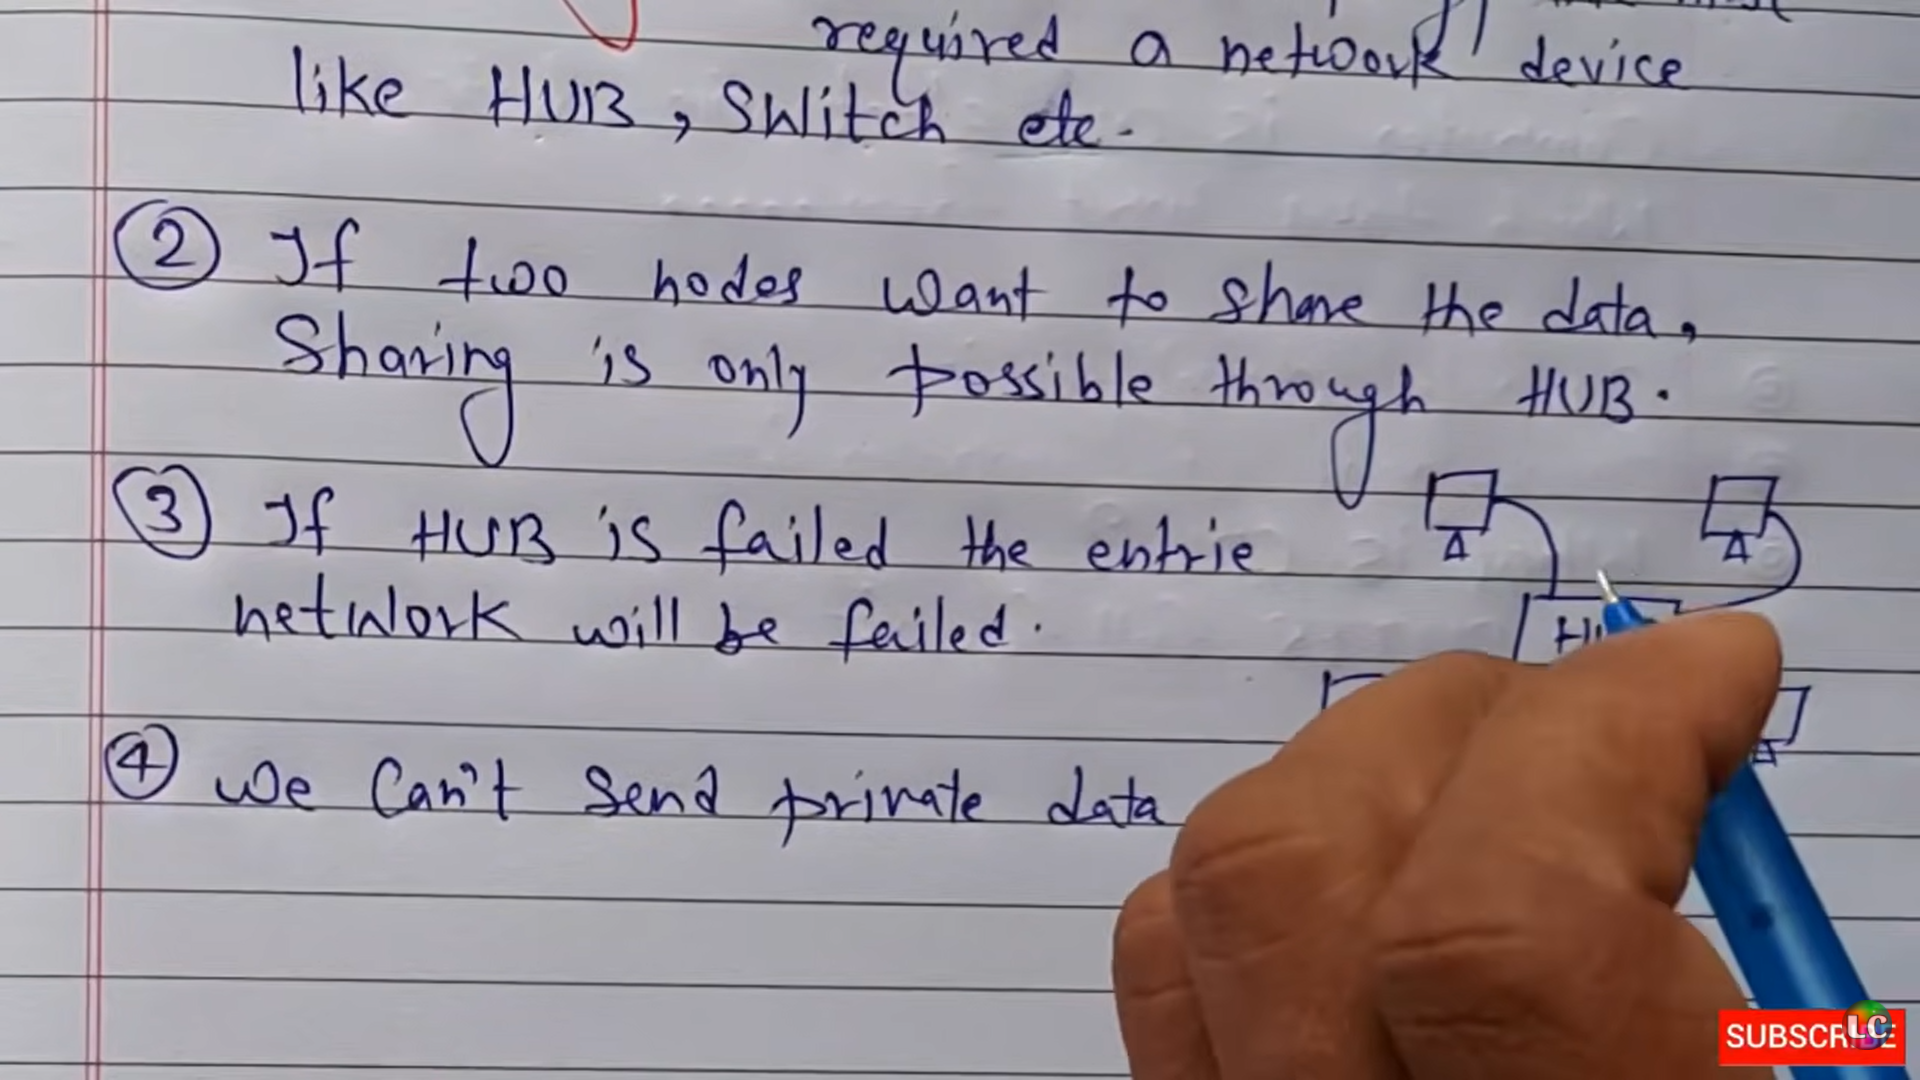 required a network device
like HUB, Switch etc.
② If two nodes want to share the data,
Sharing is only possible through HUB.
③ If HUB is failed the entrie
network will be failed.
④ We Can't Send private data
SUBSCRIBE
LC